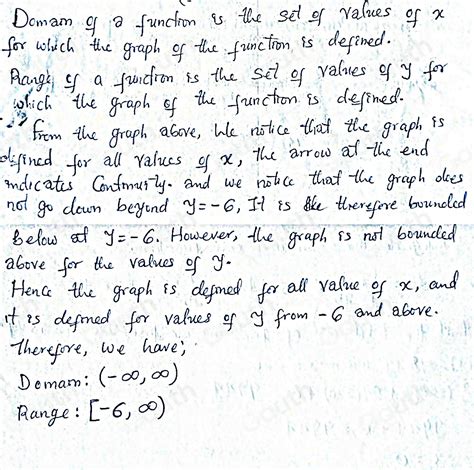 Domain of a function is the set of values of x
for which the graph of the function is defined.
Range of a function is the set of values of y for
which the graph of the function is defined.
From the graph above, we notice that the graph is
defined for all values of x, the arrow at the end
indicates Continuity. and we notice that the graph does
not go down beyond y=-6, It is therefore bounded
below at y=-6. However, the graph is not bounded
above for the values of y.
Hence the graph is defined for all value of x, and
it is defined for values of y from -6 and above.
Therefore, we have;
Domain: (-∞, ∞)
Range: [-6, ∞)